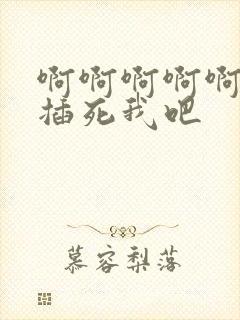 啊啊啊啊啊
插死我吧
慕容梨落